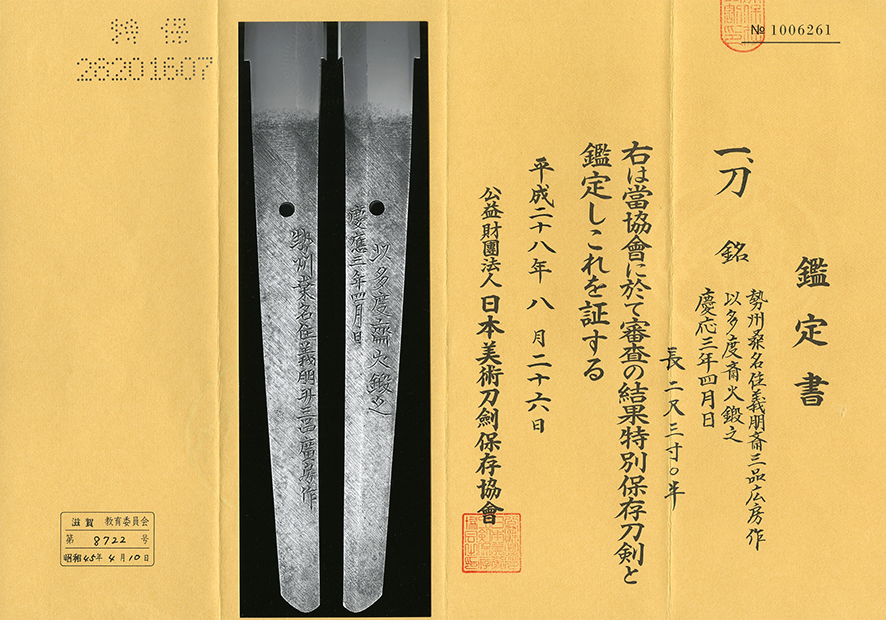 № 1006261
鑑定書
一、刀 銘
勢州桑名住義朋斎三品広房作
以多度斎火鍛之
慶応三年四月日
長二尺三寸〇半
右は當協會に於て審査の結果特別保存刀剣と
鑑定しこれを証する
平成二十八年八月二十六日
公益財團法人 日本美術刀劍保存協會
以多度齋火鍛之
慶應三年四月日
勢州桑名住義朋斎三品廣房作
特保
28201607
滋賀 教育委員会
第 8722 号
昭和45年4月10日